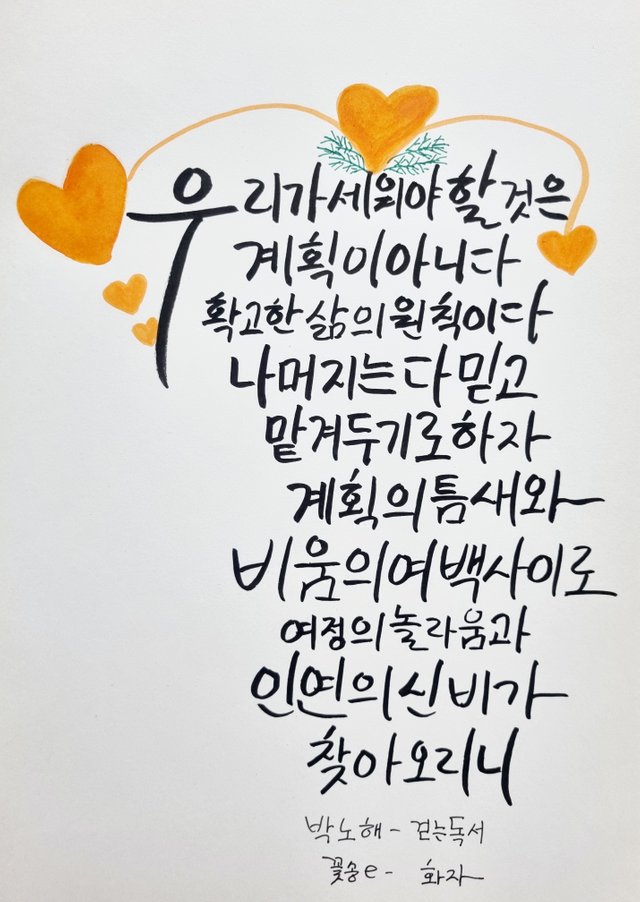 우리가 세워야 할 것은
계획이 아니다
확고한 삶의 원칙이다
나머지는 다 믿고
맡겨두기로 하자
계획의 틈새와
비움의 여백사이로
여정의 놀라움과
인연의 신비가
찾아오리니
박노해 - 걷는독서
꽃송e - 화자